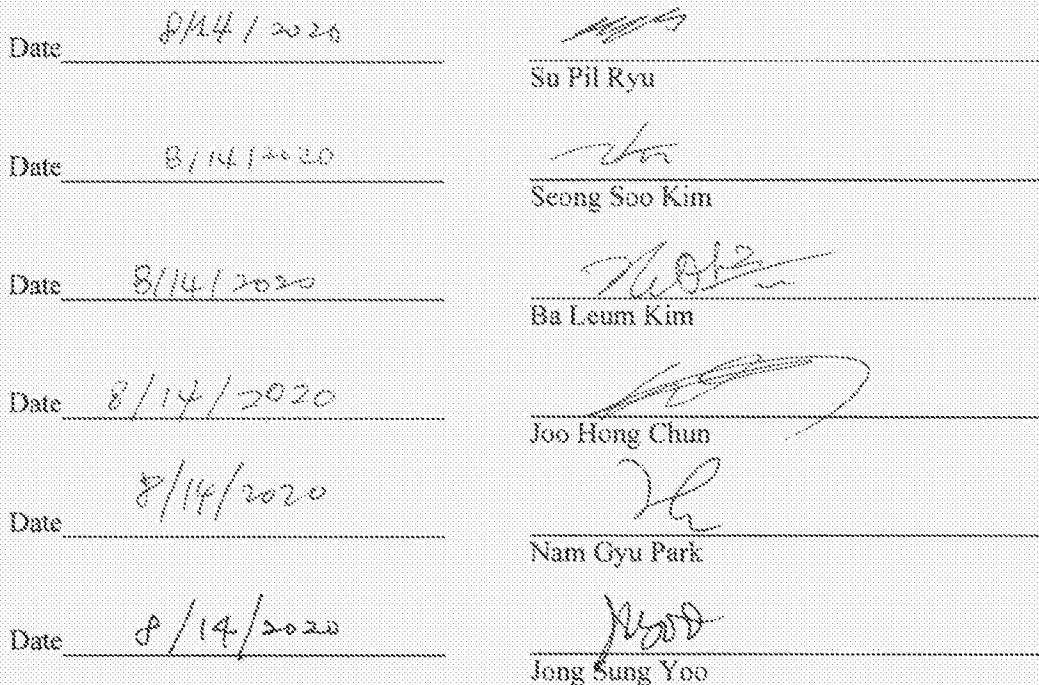 Date 8/14/2020
Su Pil Ryu
Date 8/14/2020
Seong Soo Kim
Date 8/14/2020
Ba Leum Kim
Date 8/14/2020
Joo Hong Chun
Date 8/14/2020
Nam Gyu Park
Date 8/14/2020
Jong Sung Yoo